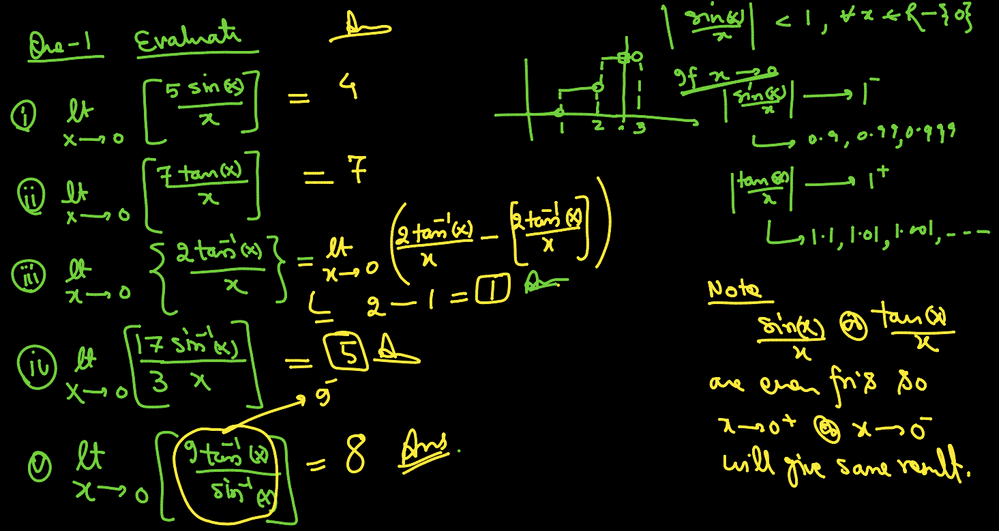 Que-1 Evaluate Ans
(i) lt x→0 [5 sin(x)/x] = 4
(ii) lt x→0 [7 tan(x)/x] = 7
(iii) lt x→0 {2 tan⁻¹(x)/x} = lt x→0 (2 tan⁻¹(x)/x − [2 tan⁻¹(x)/x])
2 − 1 = 1 Ans
(iv) lt x→0 [17 sin⁻¹(x)/3 x] = 5 A
9⁻
(v) lt x→0 [9 tan⁻¹(x)/sin⁻¹(x)] = 8 Ans.
1 2 3
|sin(x)/x| < 1, ∀ x ∈ R − {0}
If x → 0
|sin(x)/x| → 1⁻
0.9, 0.99, 0.999
|tan(x)/x| → 1⁺
1.1, 1.01, 1.001, ----
Note
sin(x)/x or tan(x)/x
are even fn's so
x→0⁺ or x→0⁻
will give same result.